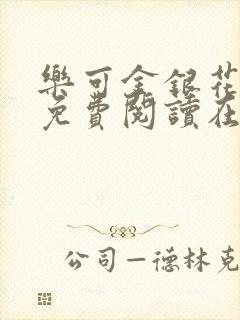 樂可金銀花
免費閱讀在
公司—德林克